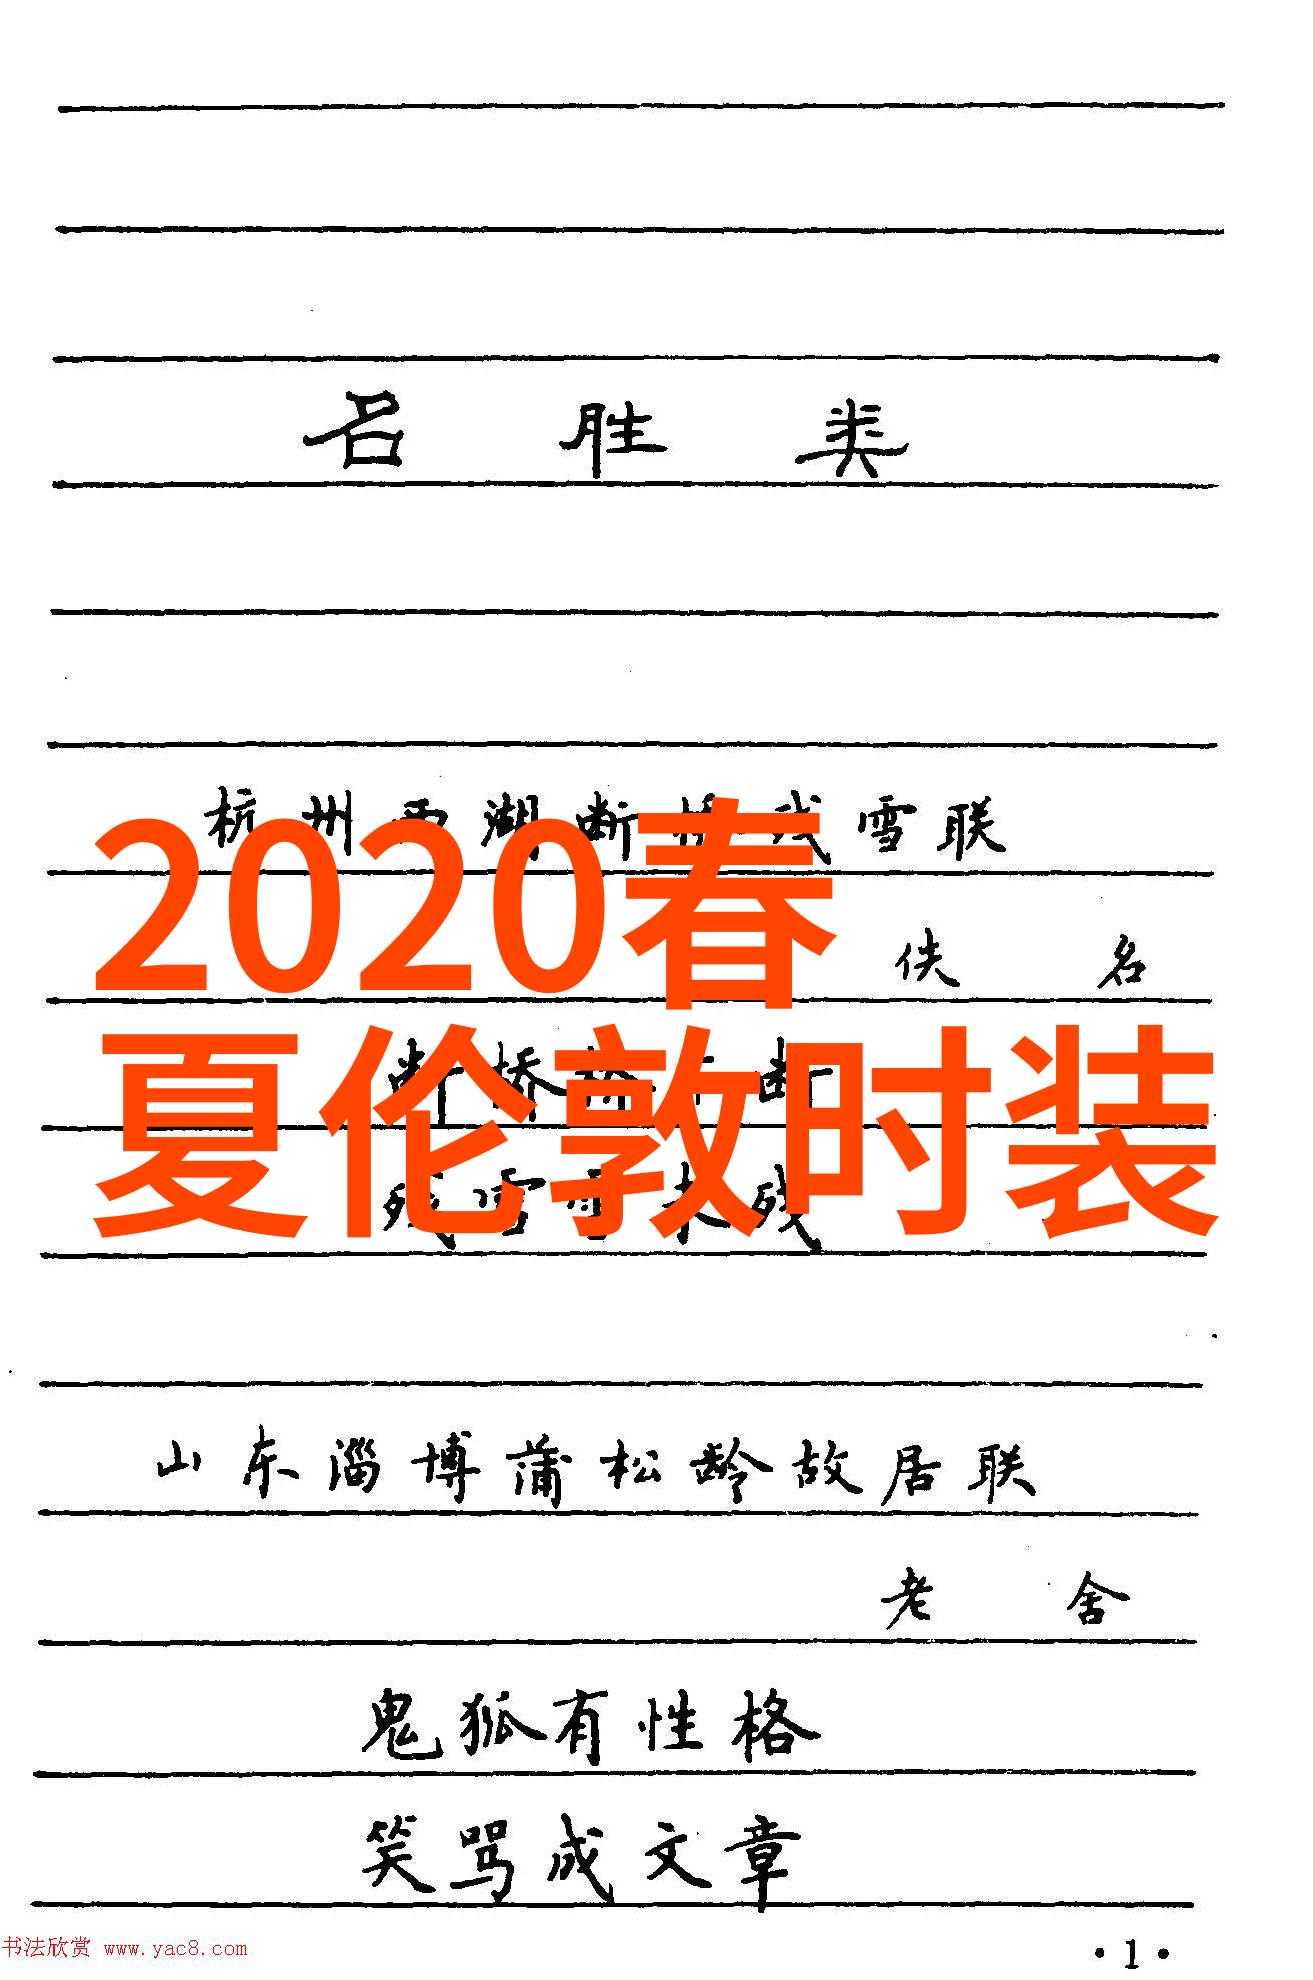 名胜类
杭州西湖断桥残雪联
佚名
2020春
夏伦敦时装
断桥桥不断
残雪雪未残
山东淄博蒲松龄故居联
老舍
鬼狐有性格
笑骂成文章
书法欣赏 www.yac8.com
·1·